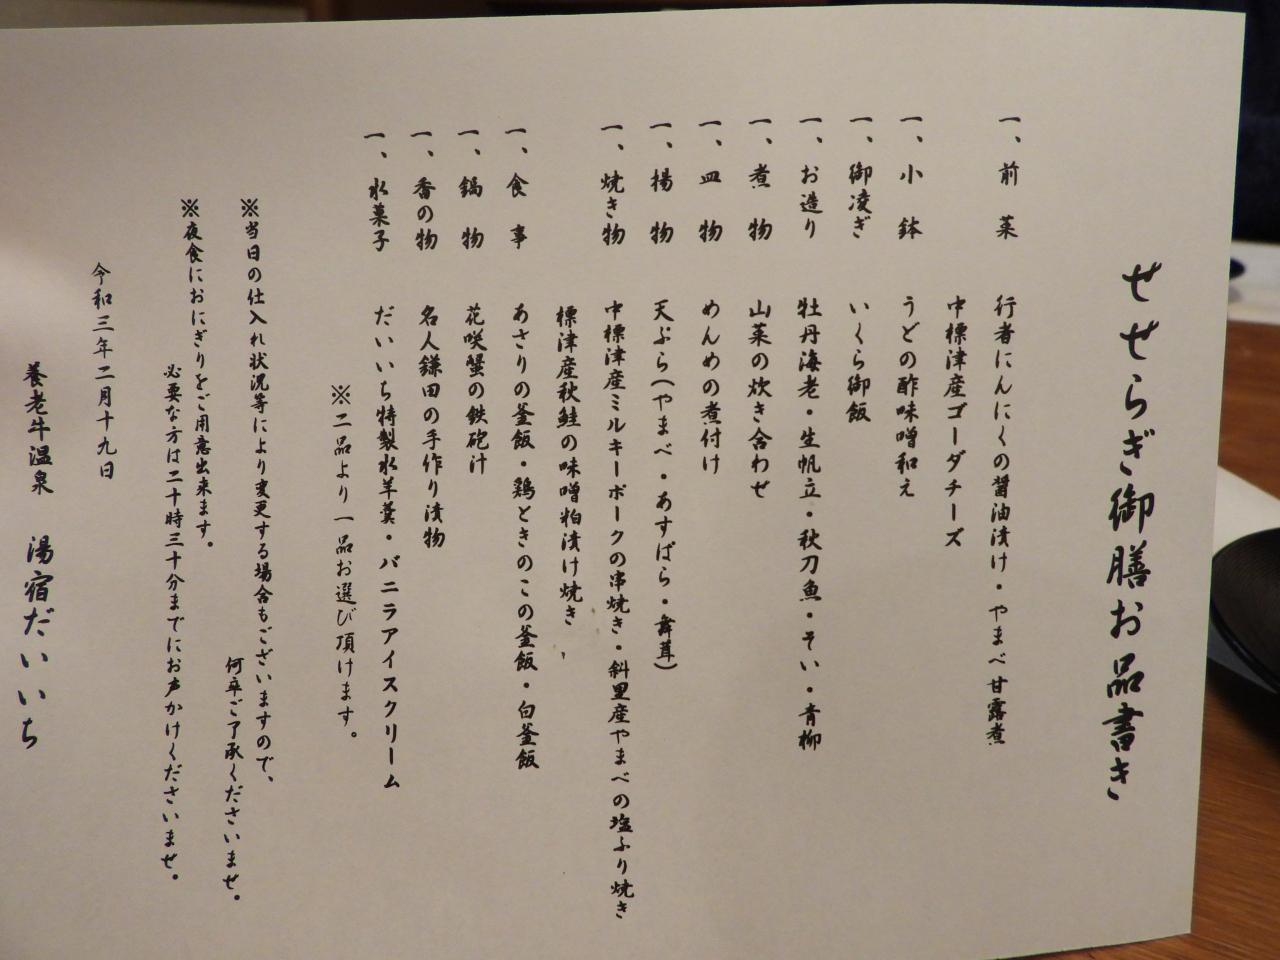 せせらぎ御膳お品書き
一、前菜 行者にんにくの醤油漬け・やまべ甘露煮
中標津産ゴーダチーズ
一、小鉢 うどの酢味噌和え
一、御凌ぎ いくら御飯
一、お造り 牡丹海老・生帆立・秋刀魚・そい・青柳
一、煮物 山菜の炊き合わせ
一、皿物 めんめの煮付け
一、揚物 天ぷら(やまべ・あすぱら・舞茸)
一、焼き物 中標津産ミルキーポークの串焼き・斜里産やまべの塩ふり焼き
標津産秋鮭の味噌粕漬け焼き
一、食事 あさりの釜飯・鶏ときのこの釜飯・白釜飯
一、鍋物 花咲蟹の鉄砲汁
一、香の物 名人鎌田の手作り漬物
一、水菓子 だいいち特製水羊羹・バニラアイスクリーム
※二品より一品お選び頂けます。
※当日の仕入れ状況等により変更する場合もございますので、
何卒ご了承くださいませ。
※夜食におにぎりをご用意出来ます。
必要な方は二十時三十分までにお声かけくださいませ。
令和三年二月十九日
養老牛温泉 湯宿だいいち